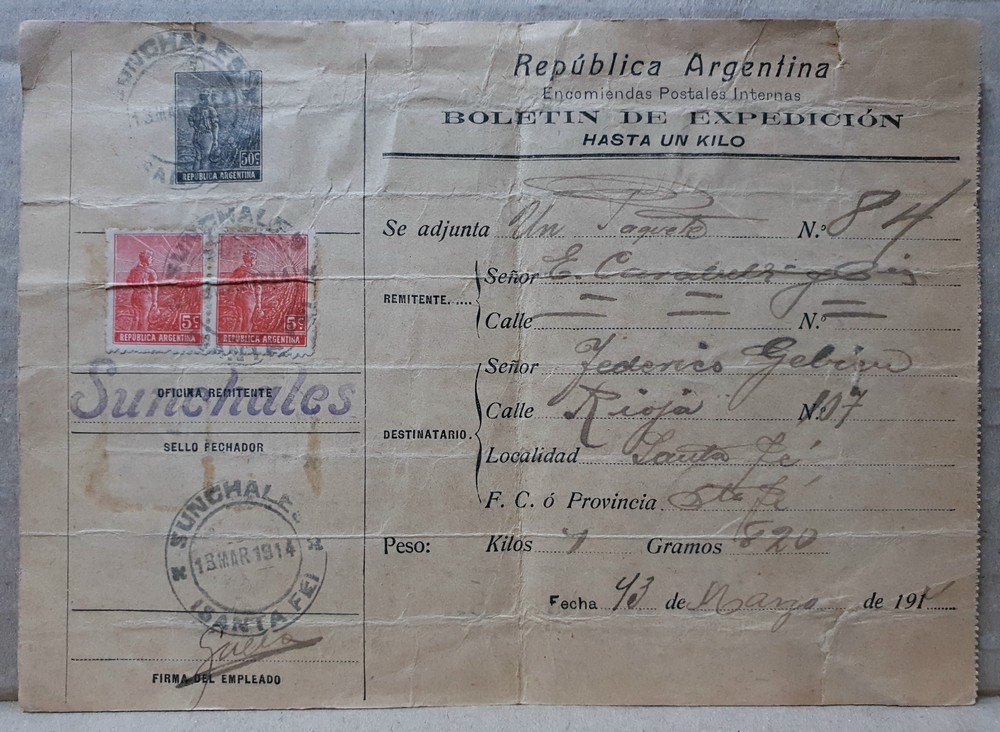 SUNCHALES
13 MAR
50c
REPUBLICA ARGENTINA
SUNCHALES
5c
REPUBLICA ARGENTINA
5c
REPUBLICA ARGENTINA
Sunchales
OFICINA REMITENTE
SELLO FECHADOR
SUNCHALES
13 MAR 1914
(SANTA FE)
FIRMA DEL EMPLEADO
República Argentina
Encomiendas Postales Internas
BOLETIN DE EXPEDICIÓN
HASTA UN KILO
Se adjunta Un Paquete N.º 84
REMITENTE.....
Señor E.
Calle N.º
DESTINATARIO.
Señor Federico
Calle Rioja N.º
Localidad Santa Fé
F. C. ó Provincia Sta Fé
Peso: Kilos Gramos 820
Fecha 13 de Marzo de 191